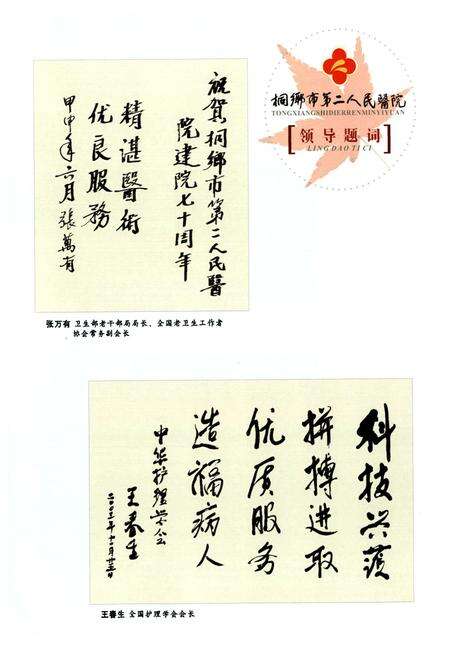 桐鄉市第二人民醫院
TONGXIANGSHIDIERRENMINYIYUAN
[领导题词]
LING DAO TI CI
祝賀桐鄉市第二人民醫
院建院七十周年
精湛醫術
优良服務
甲申年六月張萬有
张万有 卫生部老干部局局长、全国老卫生工作者
协会常务副会长
科技兴護
拼搏进取
优质服务
造福病人
中华护理学会
王春生
二〇〇三年十二月廿三日
王春生 全国护理学会会长